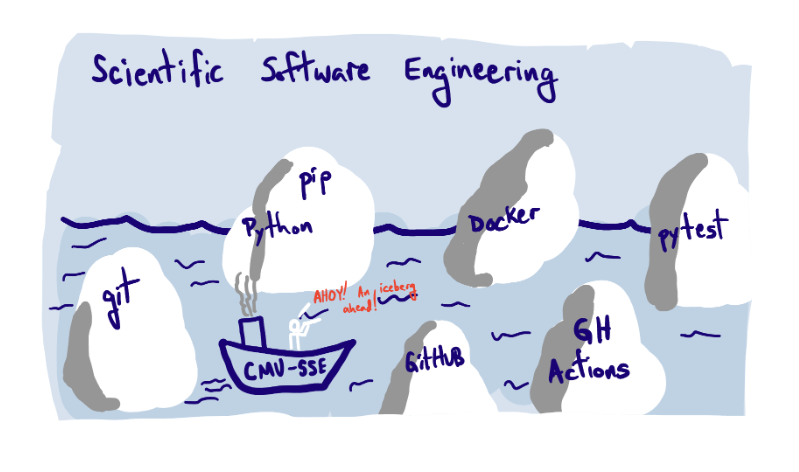 Scientific Software Engineering
pip
Python
Docker
pytest
git
AHOY! An iceberg
ahead!
CMU-SSE
GitHUB
GH
Actions